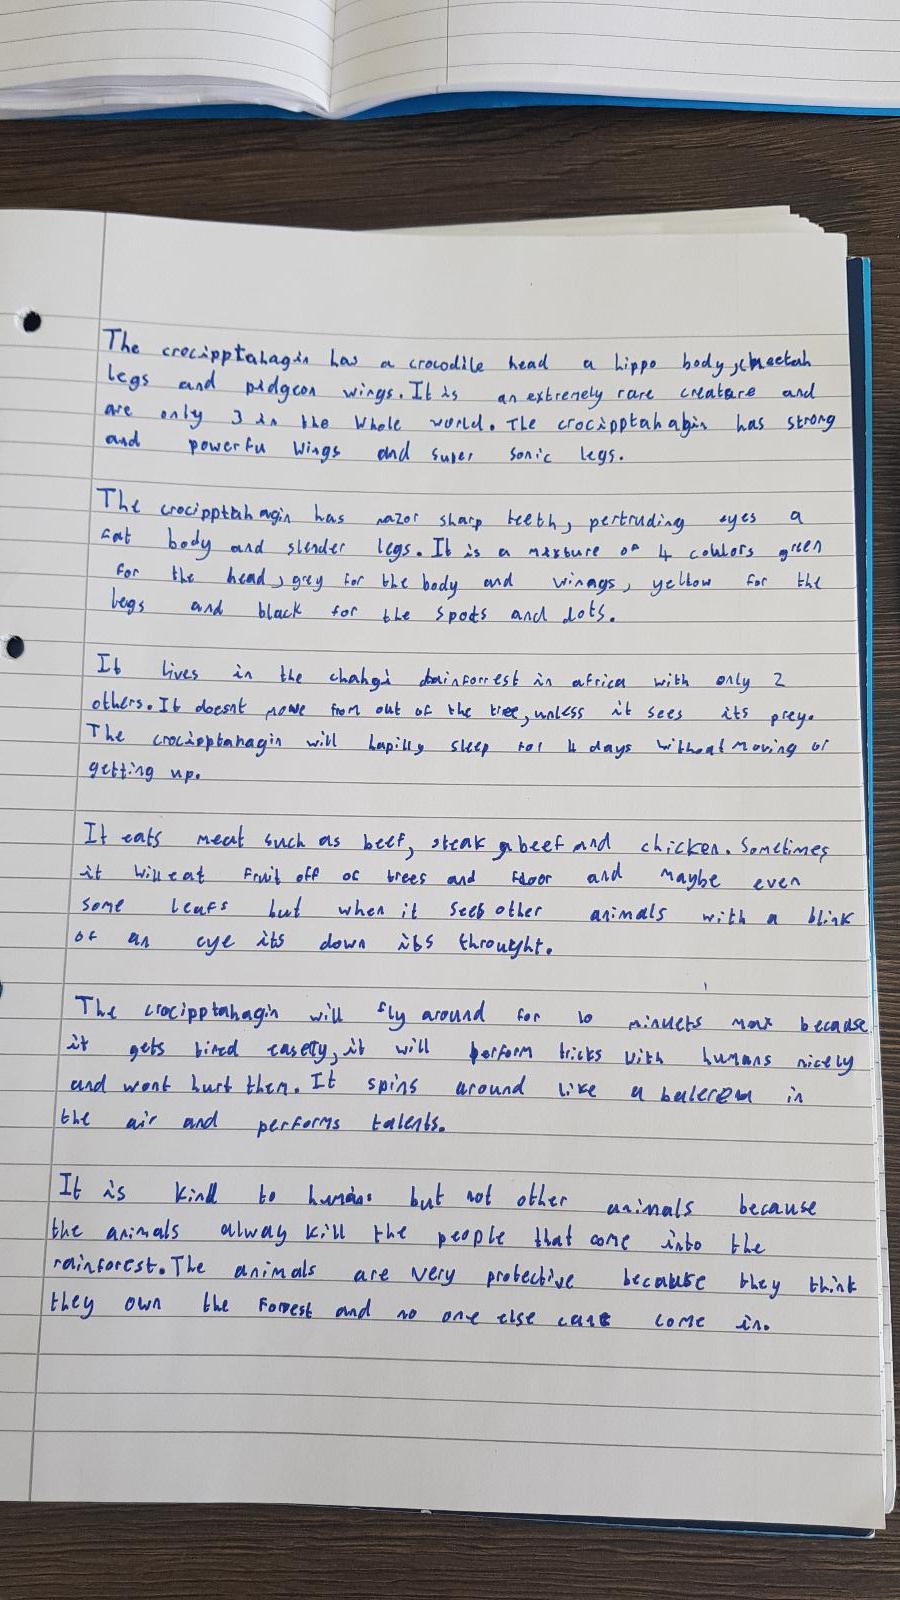 The crocipptahagin has a crocodile head a hippo body, cheetah
legs and pidgeon wings. It is an extremely rare creature and
are only 3 in the whole world. The crocipptahagin has strong
and powerfu wings and super sonic legs.
The crocipptahagin has razor sharp teeth, pertruding eyes a
fat body and slender legs. It is a mixture of 4 coulors green
for the head, grey for the body and winags, yellow for the
legs and black for the spots and dots.
It lives in the chahgi rainforrest in africa with only 2
others. It doesnt move from out of the tree, unless it sees its prey.
The crocipptahagin will hapilly sleep for 4 days without moving or
getting up.
It eats meat such as beef, steak beef and chicken. Sometimes
it will eat fruit off of trees and floor and maybe even
some leafs but when it sees other animals with a blink
of an eye its down its throught.
The crocipptahagin will fly around for 10 minuets max because
it gets tired easely, it will perform tricks with humans nicely
and wont hurt them. It spins around like a balerea in
the air and performs talents.
It is kind to humans but not other animals because
the animals alway kill the people that come into the
rainforest. The animals are very protective because they think
they own the forrest and no one else can come in.